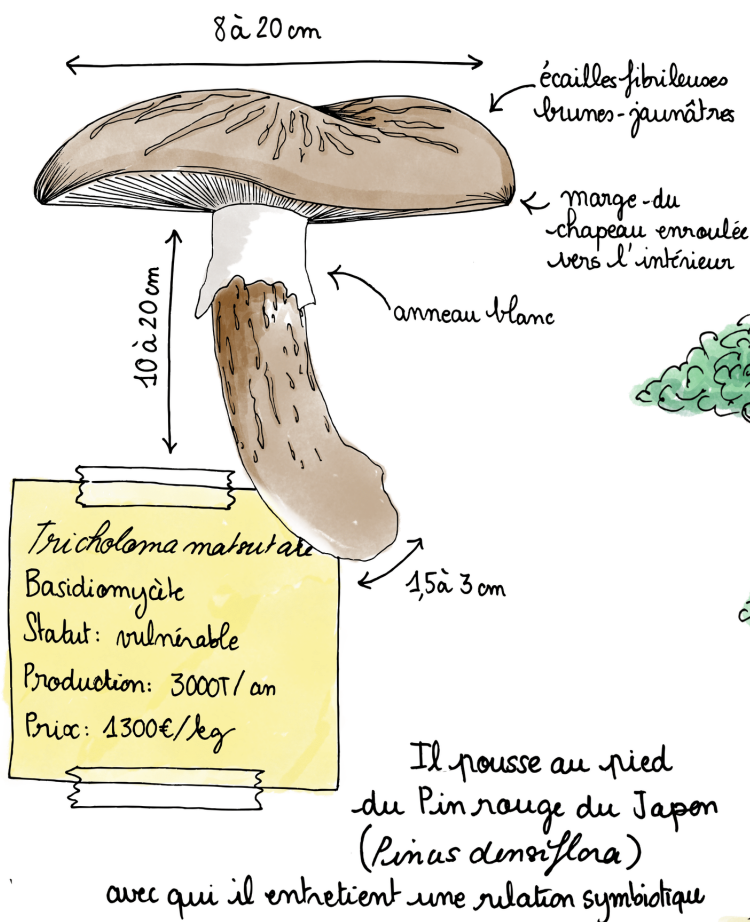 8 à 20 cm
écailles fibrileuses
brunes-jaunâtres
marge du
chapeau enroulée
vers l'intérieur
anneau blanc
10 à 20 cm
1,5 à 3 cm
Tricholoma matsutake
Basidiomycète
Statut: vulnérable
Production: 3000T/an
Prix: 1300€/kg
Il pousse au pied
du Pin rouge du Japon
(Pinus densiflora)
avec qui il entretient une relation symbiotique